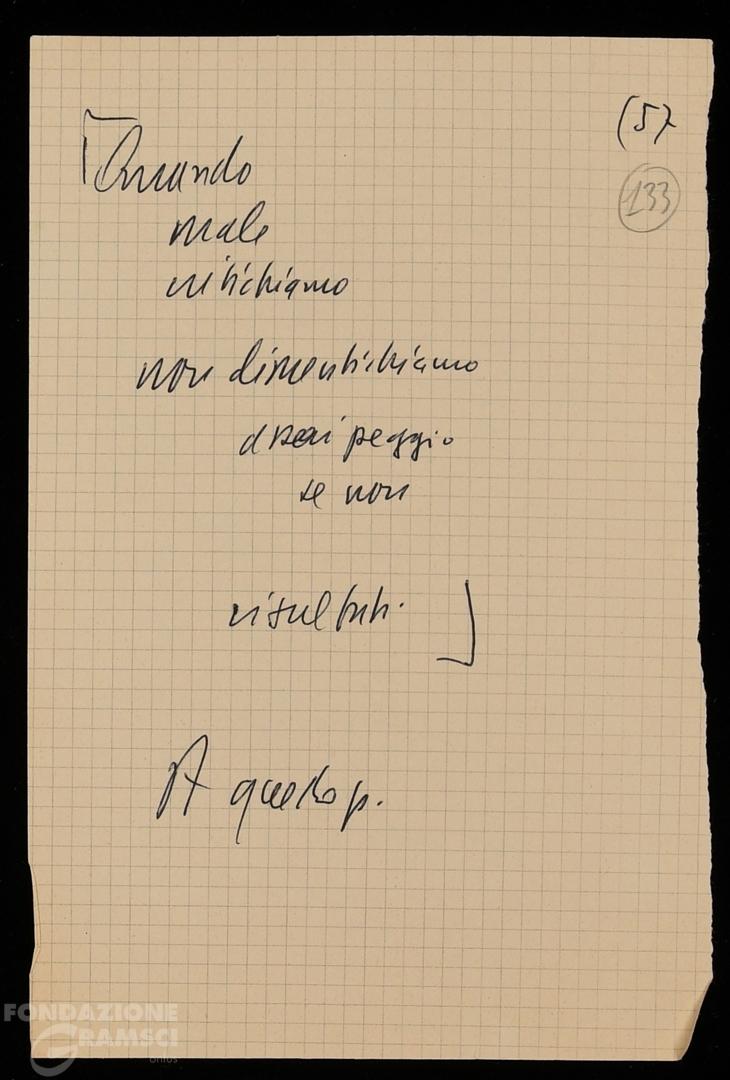 (57
133
[Quando
male
critichiamo
non dimentichiamo
assai peggio
se non
risultati. ]
A questo p.
FONDAZIONE
GRAMSCI
onlus